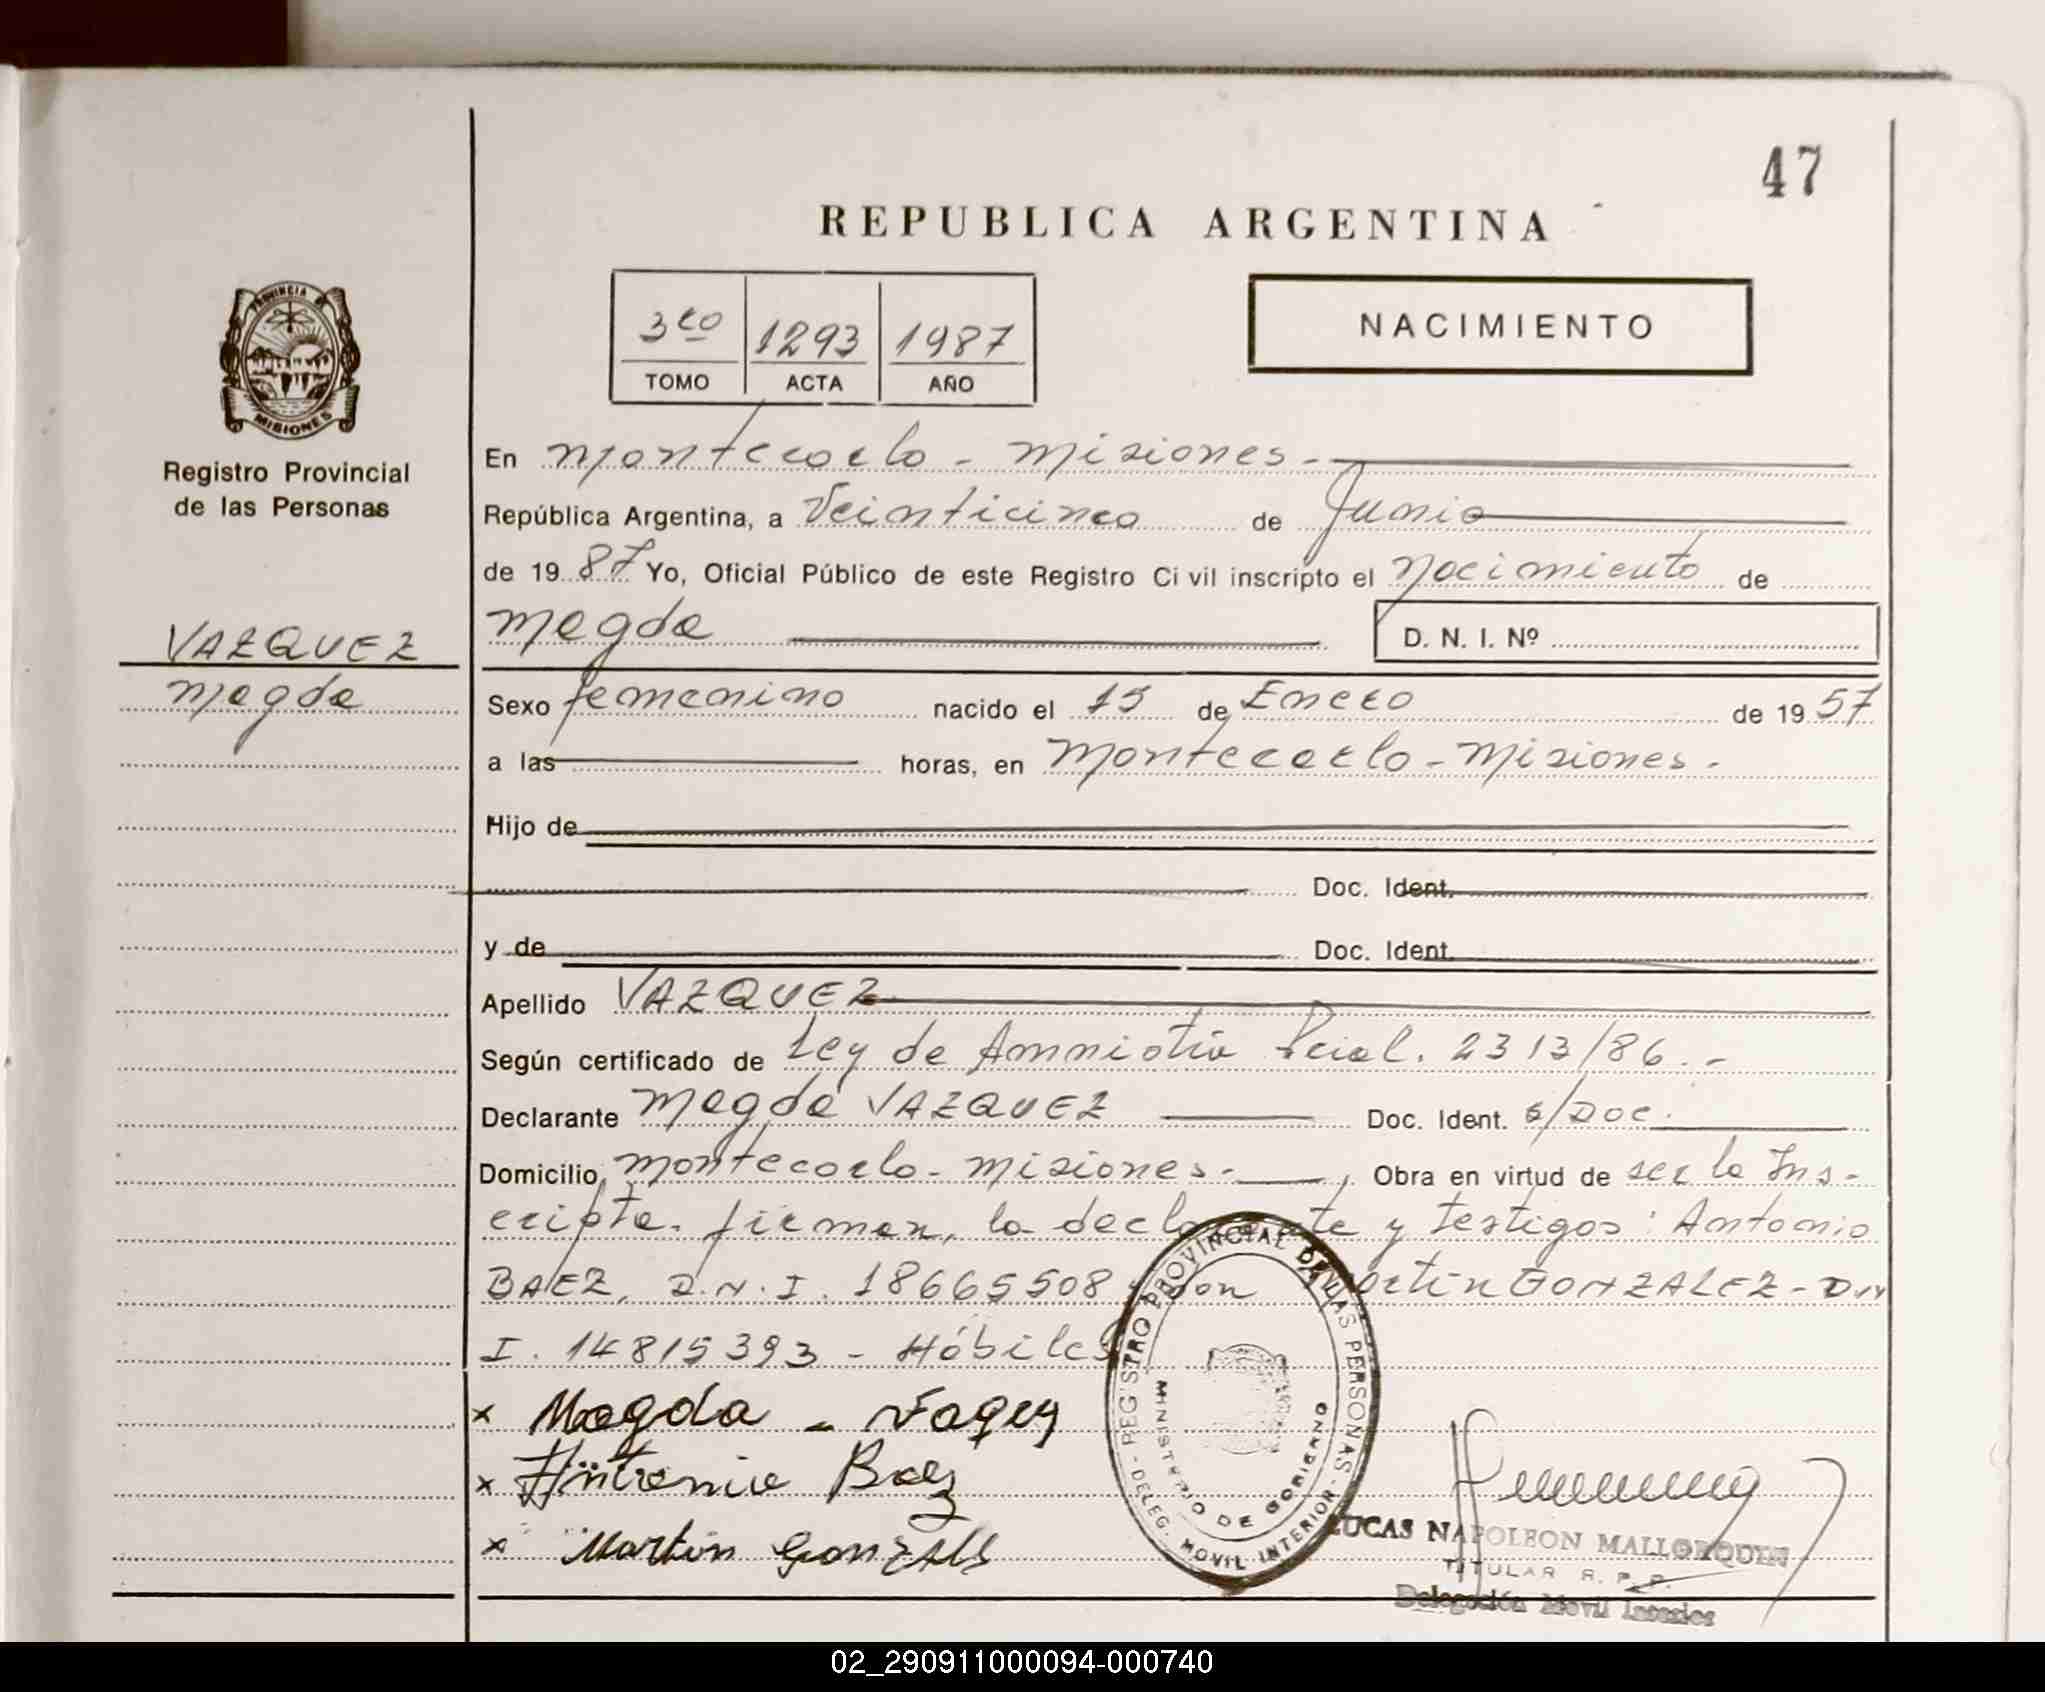 47
REPUBLICA ARGENTINA
PROVINCIA DE
MISIONES
Registro Provincial
de las Personas
3ro 1293 1987
TOMO ACTA AÑO
NACIMIENTO
En Montecarlo - Misiones -
República Argentina, a Veinticinco de Junio
de 1987 Yo, Oficial Público de este Registro Civil inscripto el Nacimiento de
VAZQUEZ
Magda
Magda D. N. I. Nº
Sexo femenino nacido el 15 de Enero de 1957
a las horas, en Montecarlo - Misiones.
Hijo de
Doc. Ident.
y de Doc. Ident.
Apellido VAZQUEZ
Según certificado de Ley de Amnistía 2313/86.-
Declarante Magda VAZQUEZ Doc. Ident. s/Doc.
Domicilio Montecarlo - Misiones - Obra en virtud de ser la Ins-
cripta. firman, la declarante y testigos: Antonio
BAEZ, D.N.I. 18665508; Don Martin GONZALEZ - D.N
I. 14815393 - Hábiles
x Magda - Vaqez
x Antonio Baez
x Martin Gonzalez
REGISTRO PROVINCIAL DE LAS PERSONAS - DELEG. MOVIL INTERIOR -
MINISTERIO DE GOBIERNO
LUCAS NAPOLEON MALLORQUIN
TITULAR R. P. P.
Delegación Movil Interior
02_290911000094-000740